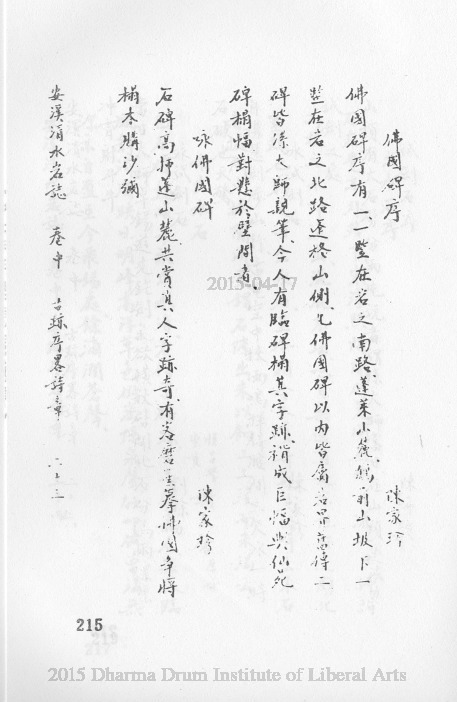 佛國碑序 陳家珍
佛國碑序有一、一豎在岩之南路、蓬萊小麓、鶴前山坂下一
豎在岩之北路蓬格山側、凡佛國碑以內皆屬岩界舊傳二
碑皆係大師親筆、今人有臨碑榻其字跡、裱成巨幅與仙
碑榻幅對懸於壁間者、
咏佛國碑 陳家珍
石碑高押蓬山麓、共賞真人字跡奇、有客磨墨摹佛國爭將
榻本購沙彌
安溪清水岩誌 卷中 古跡序畧詩章 六十三
215
2013-04-17
2015 Dharma Drum Institute of Liberal Arts